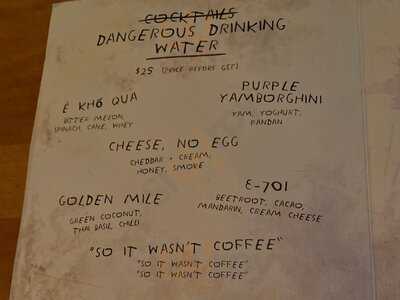 COCKTAILS
DANGEROUS DRINKING
WATER
$25 (PRICE BEFORE GST)
È KHỔ QUA
BITTER MELON,
SPINACH, CANE, WHEY
PURPLE
YAMBORGHINI
YAM, YOGHURT,
PANDAN
CHEESE, NO EGG
CHEDDAR + CREAM,
HONEY, SMOKE
GOLDEN MILE
GREEN COCONUT,
THAI BASIL, CHILLI
E-701
BEETROOT, CACAO,
MANDARIN, CREAM CHEESE
"SO IT WASN'T COFFEE"
"SO IT WASN'T COFFEE"
"SO IT WASN'T COFFEE"